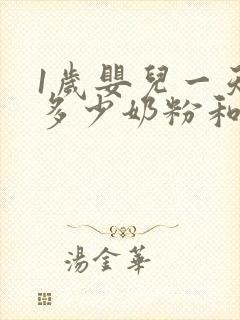 1歲嬰兒一天
多少奶粉和
湯金華